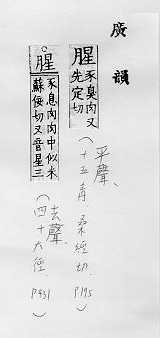 廣韻
腥 豕臭肉又
先定切
(平聲、
十五青 桑經切. P195)
腥 豕息肉肉中似米
蘇佞切又音星三
(去聲、
四十六徑. P431)